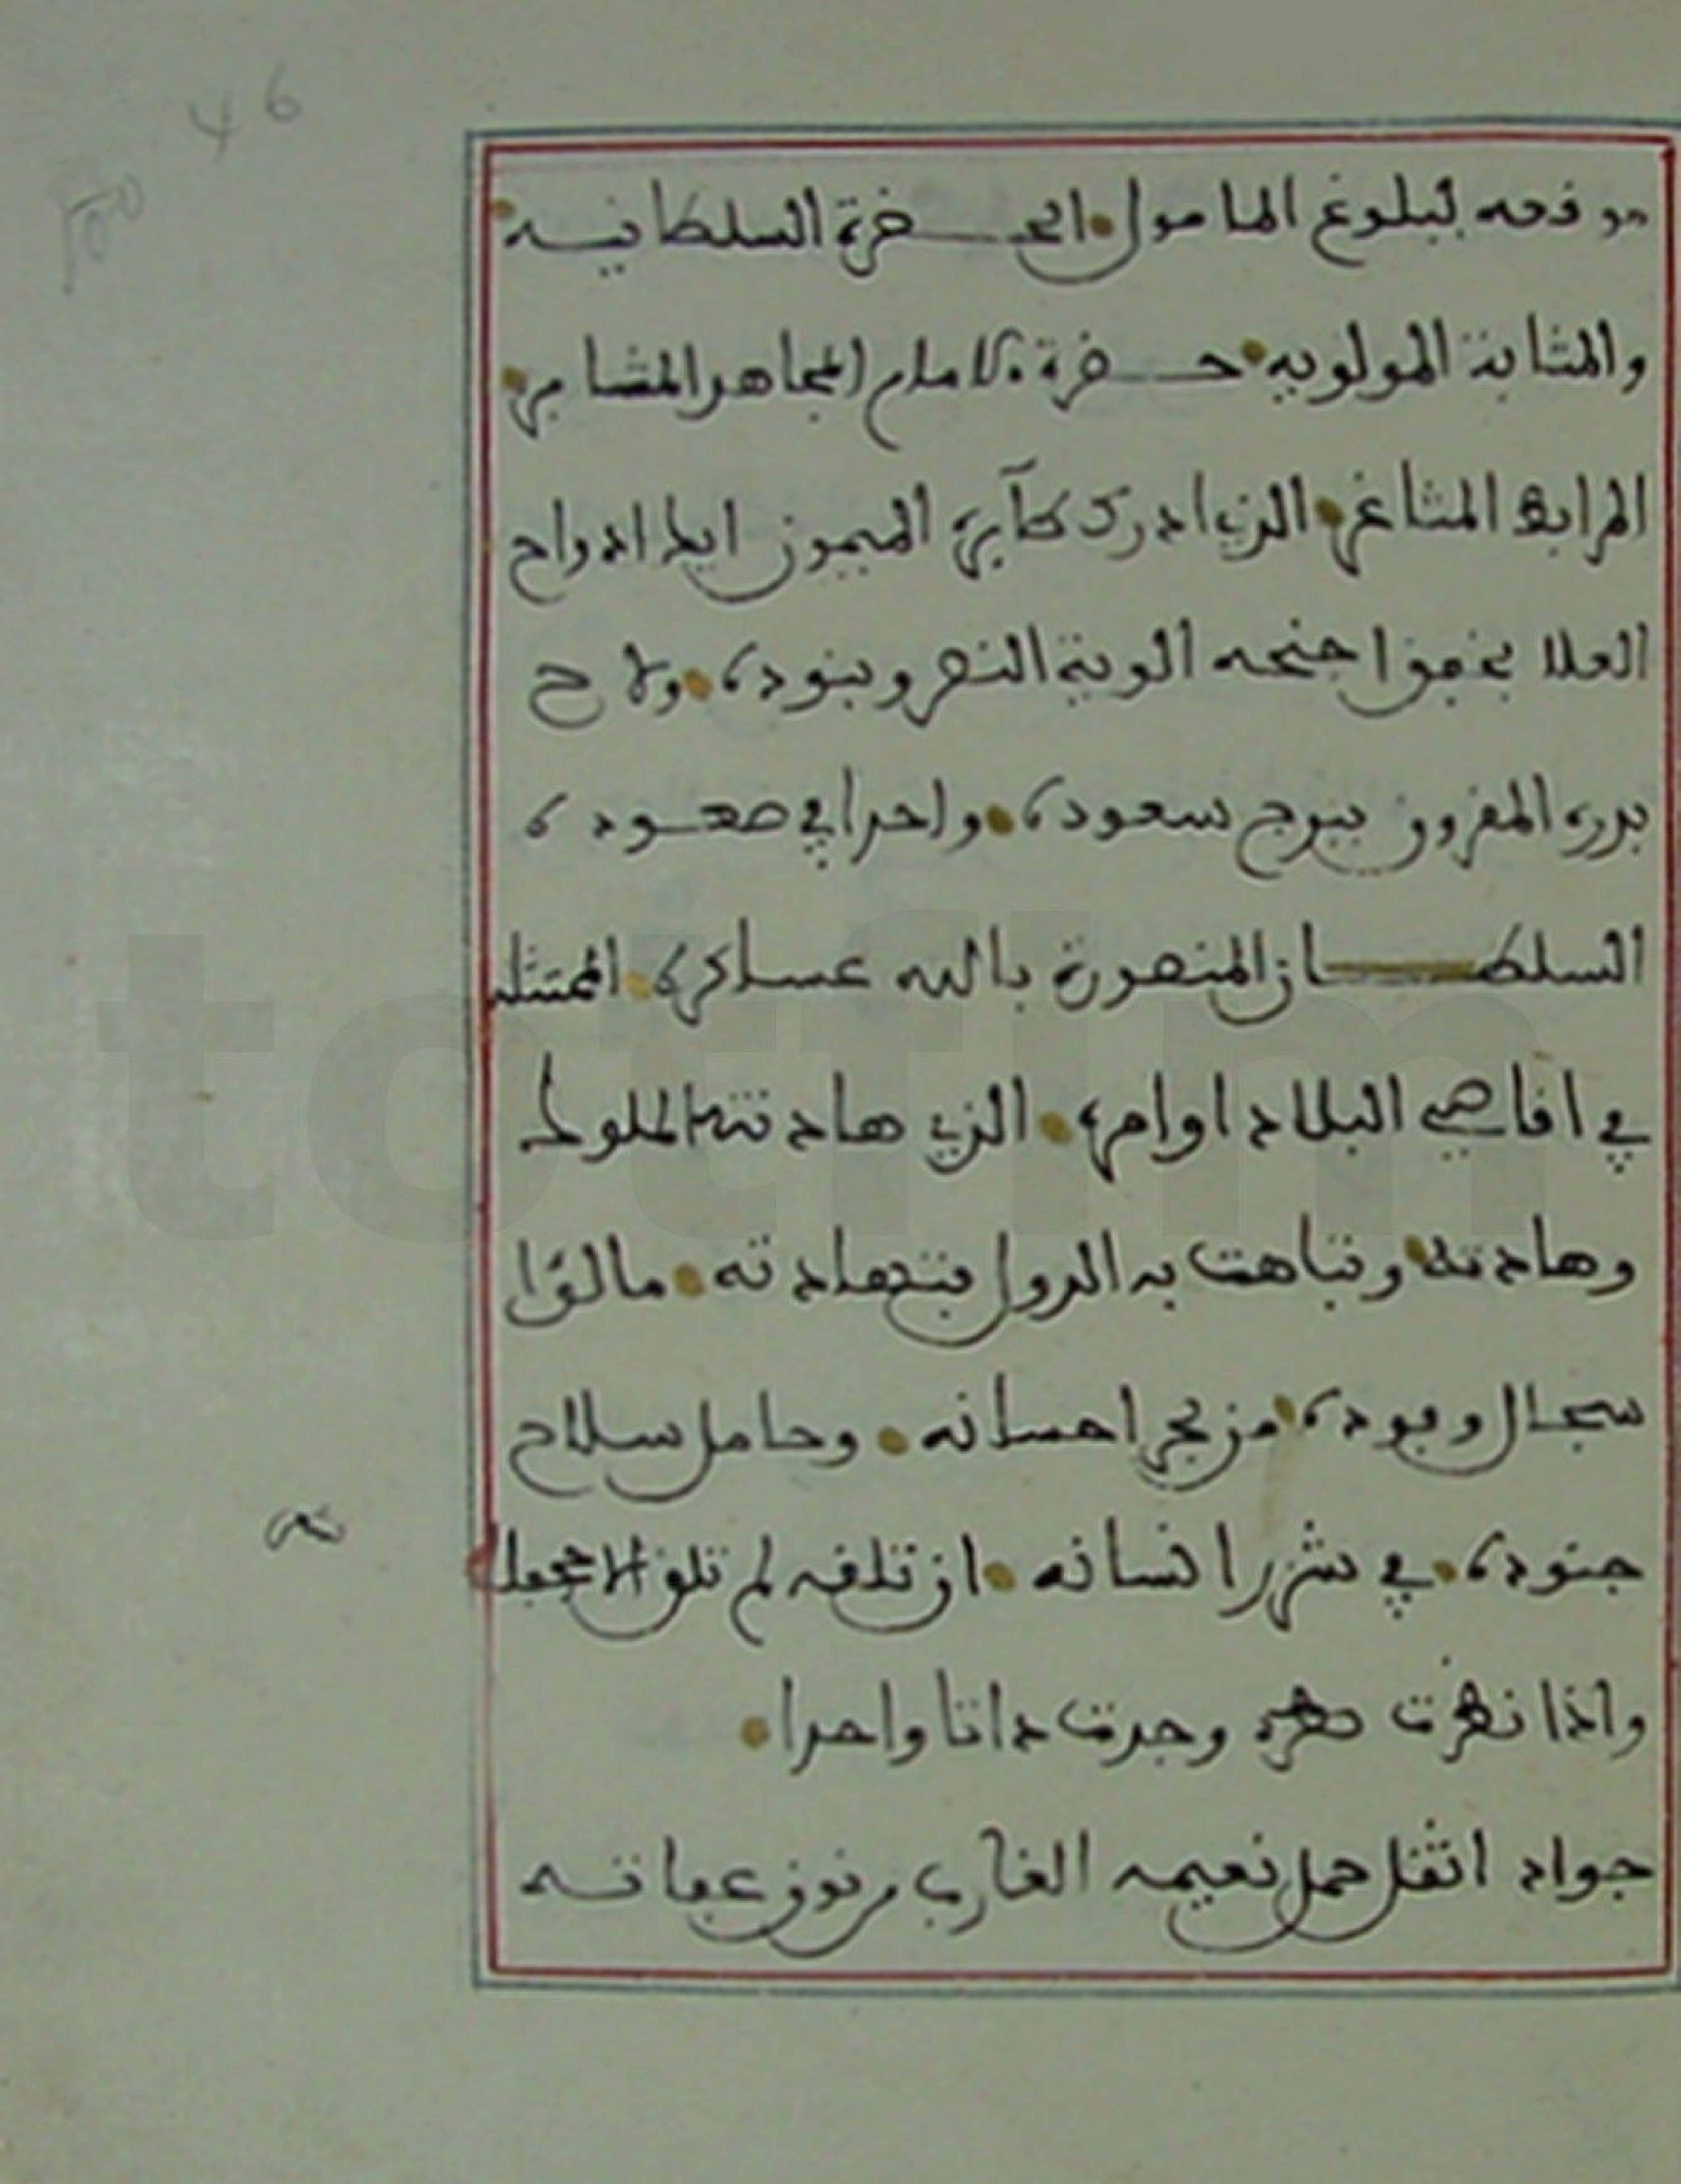 46
لبلوغ المامول الحضرة السلطانيه
والمثابة المولويه حضرة الامام المجاهد المشابر
المرابط المثاغر الذي ادرك طآيره الميمون ايك ادواح
العلا بخفق اجنحه الوية النصر وبنوده ولاح
بدره المقرون ببرج سعوده واحدا في صعوده
السلطان المنصورة بالله عساكره الممتثله
في اقاصي البلاد اوامره الذي هادنته الملوك
وهادته وتباهت به الدول بتهادته
سجال وفوده من بحر احسانه وحامل سلاح
جنوده في انسانه ان تلقه لم تلق الا جحفلا
واذا نظرت وجدت ذاتا واحدا
جواد اثقل حمل نعيمه الغارب من عفاته